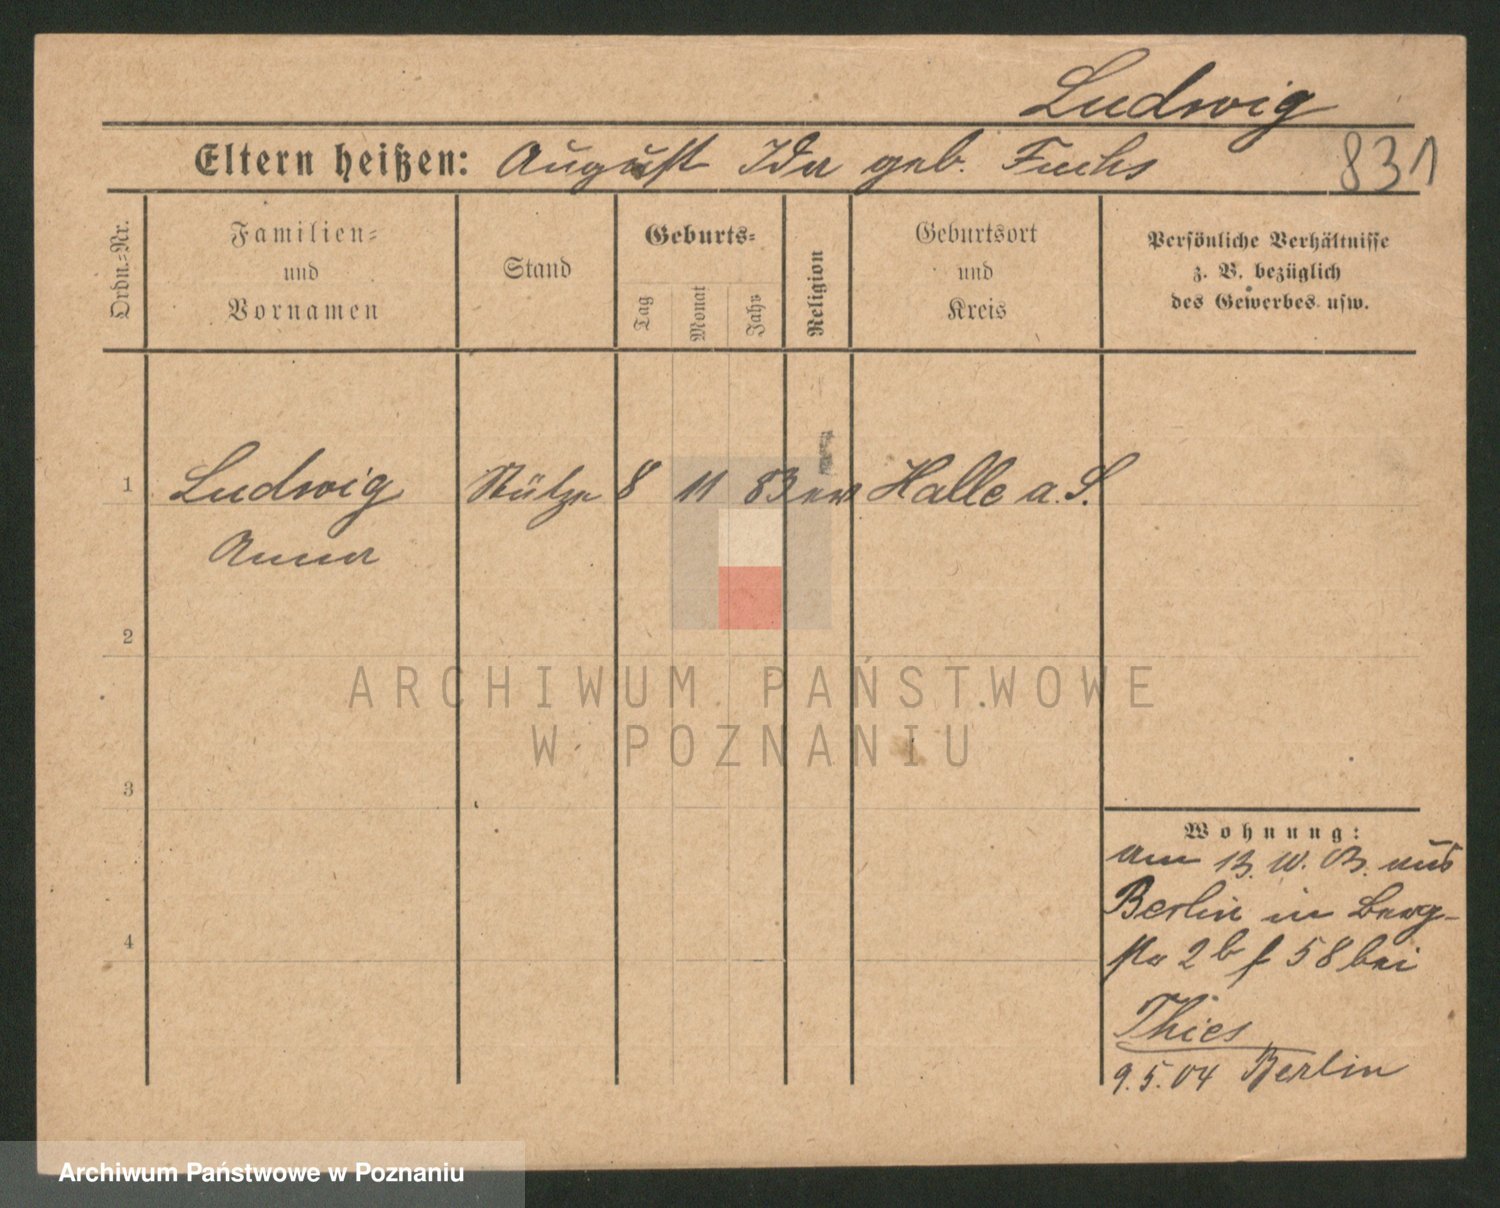 Ludwig
Eltern heißen: August Ida geb. Fuchs
831
Ordn.=Nr.
Familien=
und
Vornamen
Stand
Geburts=
Tag
Monat
Jahr
Religion
Geburtsort
und
Kreis
Persönliche Verhältnisse
z. B. bezüglich
des Gewerbes usw.
1 Ludwig Stütze 8 11 83 ev Halle a. S.
Anna
2
ARCHIWUM PAŃSTWOWE
W POZNANIU
3
Wohnung:
am 13. 10. 03. aus
Berlin in Berg-
str 2b f 58 bei
4
Thies
9.5.04 Berlin
Archiwum Państwowe w Poznaniu